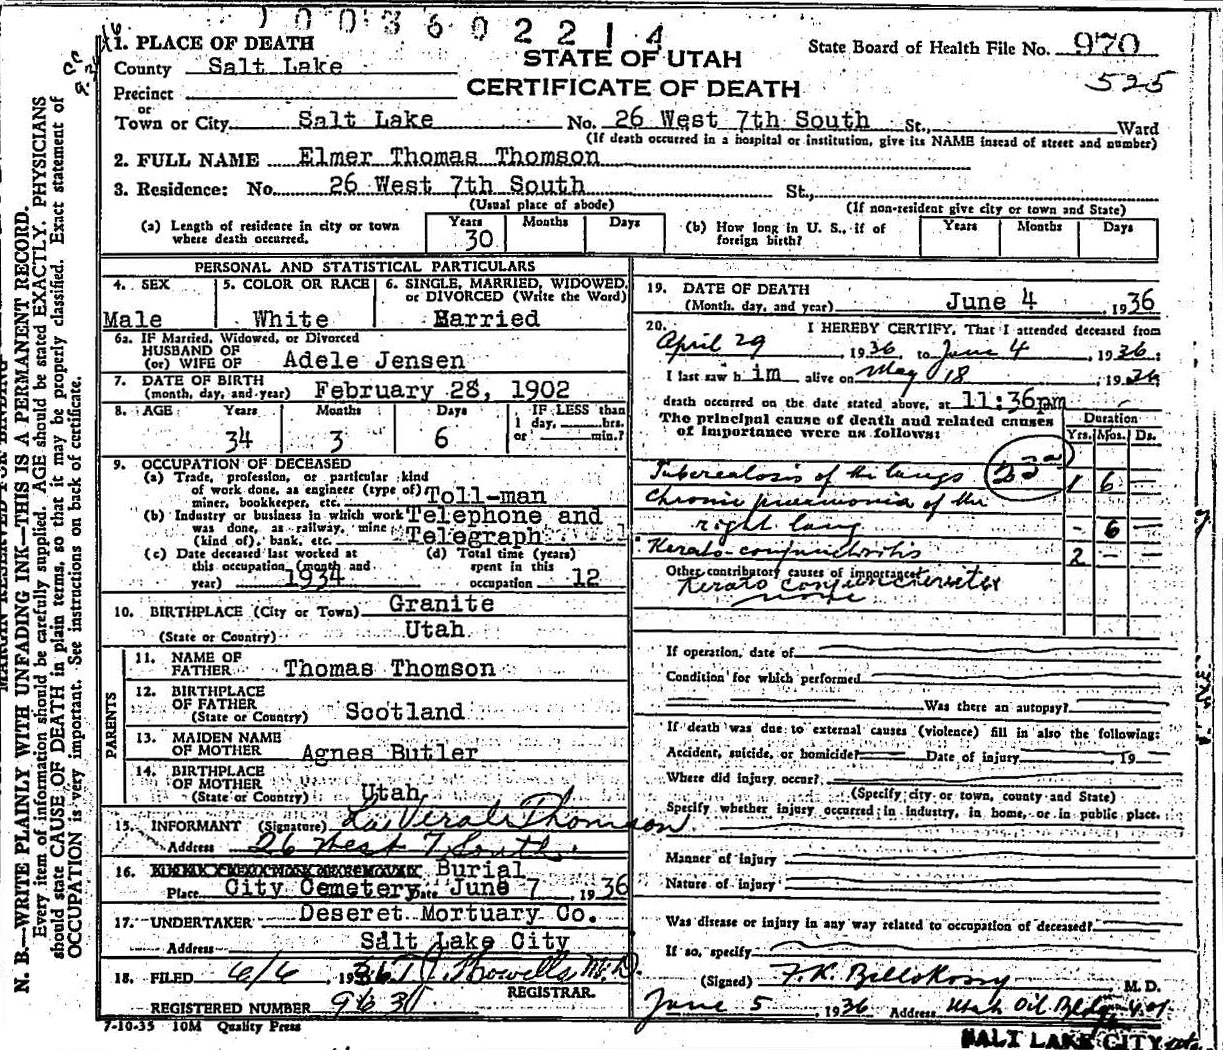 1003602214
1. PLACE OF DEATH
STATE OF UTAH
CERTIFICATE OF DEATH
State Board of Health File No. 970
525
County Salt Lake
Precinct
or
Town or City Salt Lake No. 26 West 7th South St., Ward
(If death occurred in a hospital or institution, give its NAME instead of street and number)
2. FULL NAME Elmer Thomas Thomson
3. Residence: No. 26 West 7th South St.,
(Usual place of abode) (If non-resident give city or town and State)
(a) Length of residence in city or town where death occurred. Years 30 Months Days
(b) How long in U. S., if of foreign birth? Years Months Days
PERSONAL AND STATISTICAL PARTICULARS
4. SEX Male
5. COLOR OR RACE White
6. SINGLE, MARRIED, WIDOWED, or DIVORCED (Write the Word) Married
6a. IF Married, Widowed, or Divorced
HUSBAND OF
(or) WIFE OF Adele Jensen
7. DATE OF BIRTH
(month, day, and year) February 28, 1902
8. AGE Years 34 Months 3 Days 6 IF LESS than 1 day, hrs. or min.?
9. OCCUPATION OF DECEASED
(a) Trade, profession, or particular kind of work done, as engineer (type of) miner, bookkeeper, etc. Toll-man
(b) Industry or business in which work was done, as railway, mine (kind of), bank, etc. Telephone and Telegraph
(c) Date deceased last worked at this occupation (month and year) 1934
(d) Total time (years) spent in this occupation 12
10. BIRTHPLACE (City or Town) Granite
(State or Country) Utah
PARENTS
11. NAME OF FATHER Thomas Thomson
12. BIRTHPLACE OF FATHER (State or Country) Scotland
13. MAIDEN NAME OF MOTHER Agnes Butler
14. BIRTHPLACE OF MOTHER (State or Country) Utah
15. INFORMANT (Signature) Thomson
Address 26 West 7 South
16. Burial
Place City Cemetery Date June 7 1936
17. UNDERTAKER Deseret Mortuary Co.
Address Salt Lake City
18. FILED 6/6 1936 T J Howells M.D.
REGISTRAR.
REGISTERED NUMBER
7-10-35 10M Quality Press
19. DATE OF DEATH
(Month, day, and year) June 4 1936
20. I HEREBY CERTIFY, That I attended deceased from
April 29 1936 to June 4 1936
I last saw him alive on May 18 1936
death occurred on the date stated above, at 11:36pm
The principal cause of death and related causes of importance were as follows:
Duration
Yrs. Mos. Ds.
Tuberculosis of the lungs 23a 1 6 —
Chronic pneumonia of the
right lung - 6 —
Kerato-conjunctivitis 2 — —
Other contributory causes of importance:
Kerato conjunctivitis
none
If operation, date of
Condition for which performed
Was there an autopsy?
If death was due to external causes (violence) fill in also the following:
Accident, suicide, or homicide? Date of injury 19
Where did injury occur?
(Specify city or town, county and State)
Specify whether injury occurred in industry, in home, or in public place.
Manner of injury
Nature of injury
Was disease or injury in any way related to occupation of deceased?
If so, specify
(Signed) M. D.
June 5 1936 Address Utah Oil Bldg
SALT LAKE CITY
N. B.—WRITE PLAINLY WITH UNFADING INK—THIS IS A PERMANENT RECORD.
Every item of information should be carefully supplied. AGE should be stated EXACTLY. PHYSICIANS
should state CAUSE OF DEATH in plain terms, so that it may be properly classified. Exact statement of
OCCUPATION is very important. See instructions on back of certificate.
MARGIN RESERVED FOR BINDING